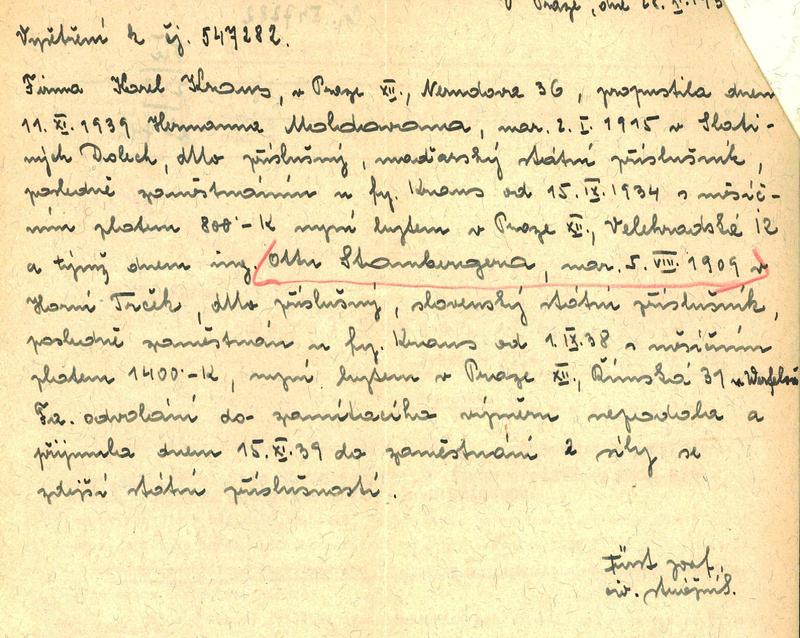 V Praze, dne 28.X.193
Vyšetření k čj. 547282.
Firma Karel Kraus, v Praze XII., Nerudova 36, propustila dnem
11.XI.1939 Hermanna Moldovana, nar. 2.I.1915 v Slati-
ných Dolech, dtto příslušný, maďarský státní příslušník,
posledně zaměstnáním u fy. Kraus od 15.IX.1934 s měsíč-
ním platem 800·-K nyní bytem v Praze XII., Velehradská 12
a týmž dnem ing. Ottu Stambergera, nar. 5.VIII.1909 v
Horní Trček, dtto příslušný, slovenský státní příslušník,
posledně zaměstnán u fy. Kraus od 1.IX.38 s měsíčním
platem 1400·-K, nyní bytem v Praze XII., Římská 31 u
Fa. odvolání do zamítacího výměru nepodala a
přijmula dnem 15.XI.39 do zaměstnání 2 síly se
zdejší státní příslušností.
Fürst Josef,
civ. strážník.